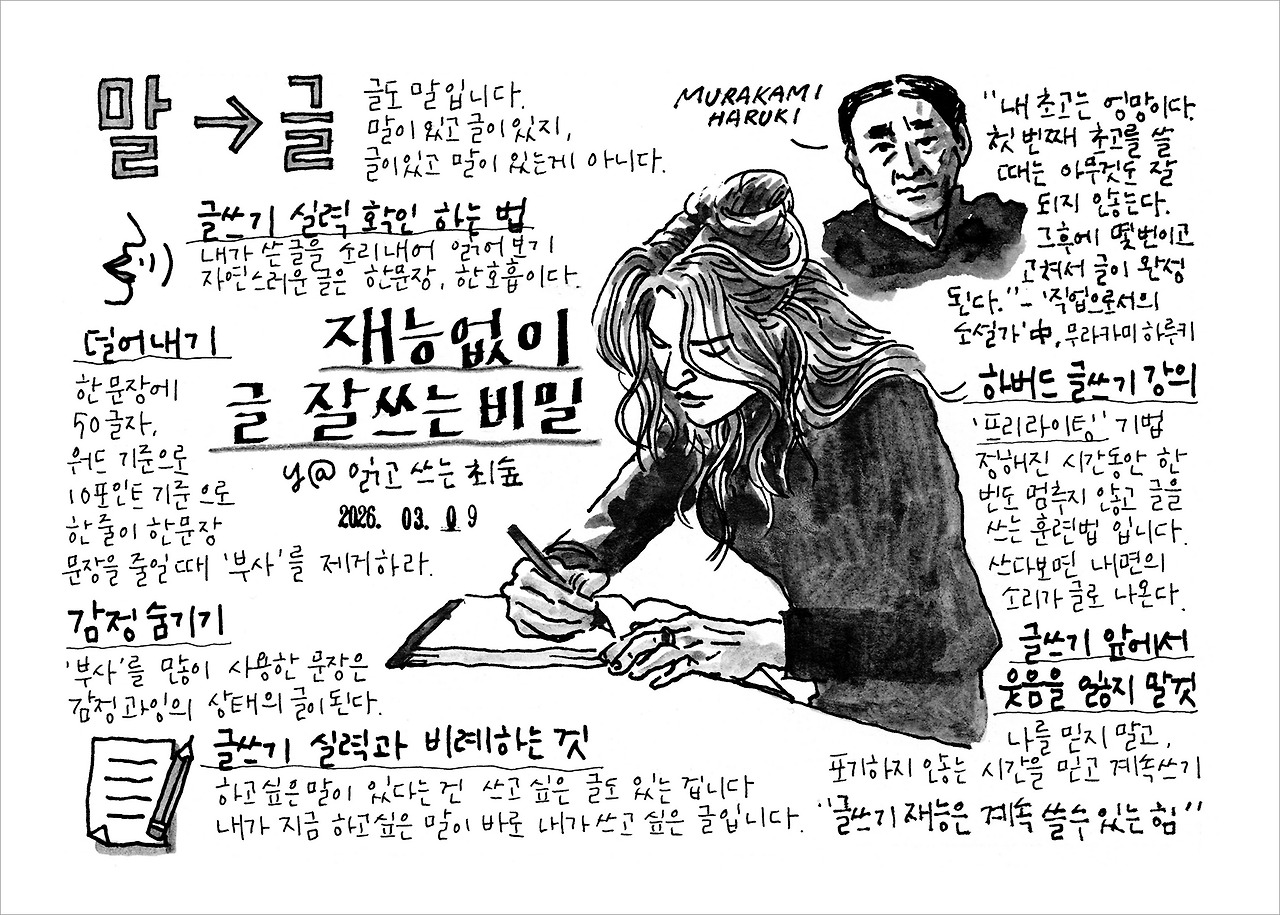 말 → 글
글도 말입니다.
말이 있고 글이 있지,
글이 있고 말이 있는게 아니다.
글쓰기 실력 확인 하는 법
내가 쓴 글을 소리내어 읽어보기
자연스러운 글은 한문장, 한호흡이다.
재능없이
글 잘쓰는 비밀
by@ 읽고 쓰는 최숲
2026. 03. 09
덜어내기
한 문장에
50글자,
워드 기준으로
10포인트 기준으로
한 줄이 한문장
문장을 줄일때 '부사'를 제거하라.
감정 숨기기
'부사'를 많이 사용한 문장은
감정과잉의 상태의 글이 된다.
글쓰기 실력과 비례하는 것
하고싶은말이 있다는건 쓰고 싶은 글도 있는 겁니다
내가 지금 하고싶은 말이 바로 내가 쓰고 싶은 글입니다.
MURAKAMI
HARUKI
"내 초고는 엉망이다.
첫 번째 초고를 쓸
때는 아무것도 잘
되지 않는다.
그후에 몇번이고
고쳐서 글이 완성
된다." - '직업으로서의
소설가' 中, 무라카미 하루키
하버드 글쓰기 강의
'프리라이팅' 기법
정해진 시간동안 한
번도 멈추지 않고 글을
쓰는 훈련법 입니다.
쓰다보면 내면의
소리가 글로 나온다.
글쓰기 앞에서
웃음을 잃지 말것
나를 믿지 말고,
포기하지 않는 시간을 믿고 계속쓰기
"글쓰기 재능은 계속 쓸수 있는 힘"